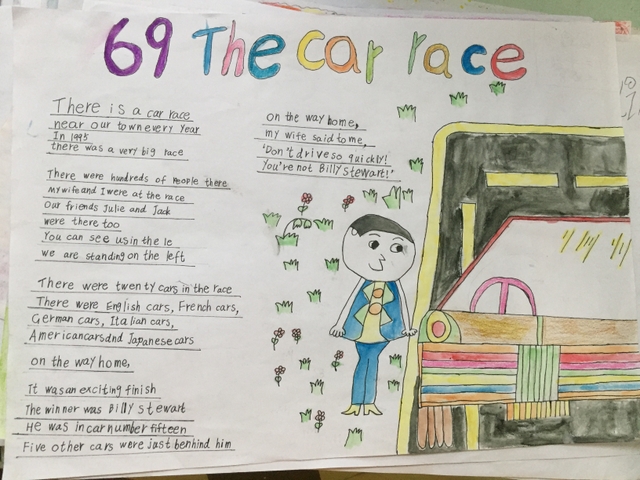 69 The car race
There is a car race
near our town every year
In 1995
there was a very big race
There were hundreds of people there
My wife and I were at the race
Our friends Julie and Jack
were there too
You can see us in the le
we are standing on the left
There were twenty cars in the race
There were English cars, French cars,
German cars, Italian cars,
American cars and Japanese cars
on the way home,
It was an exciting finish
The winner was Billy Stewart
He was in car number fifteen
Five other cars were just benhind him
on the way home,
my wife said to me,
'Don't drive so quickly!
You're not Billy Stewart!'